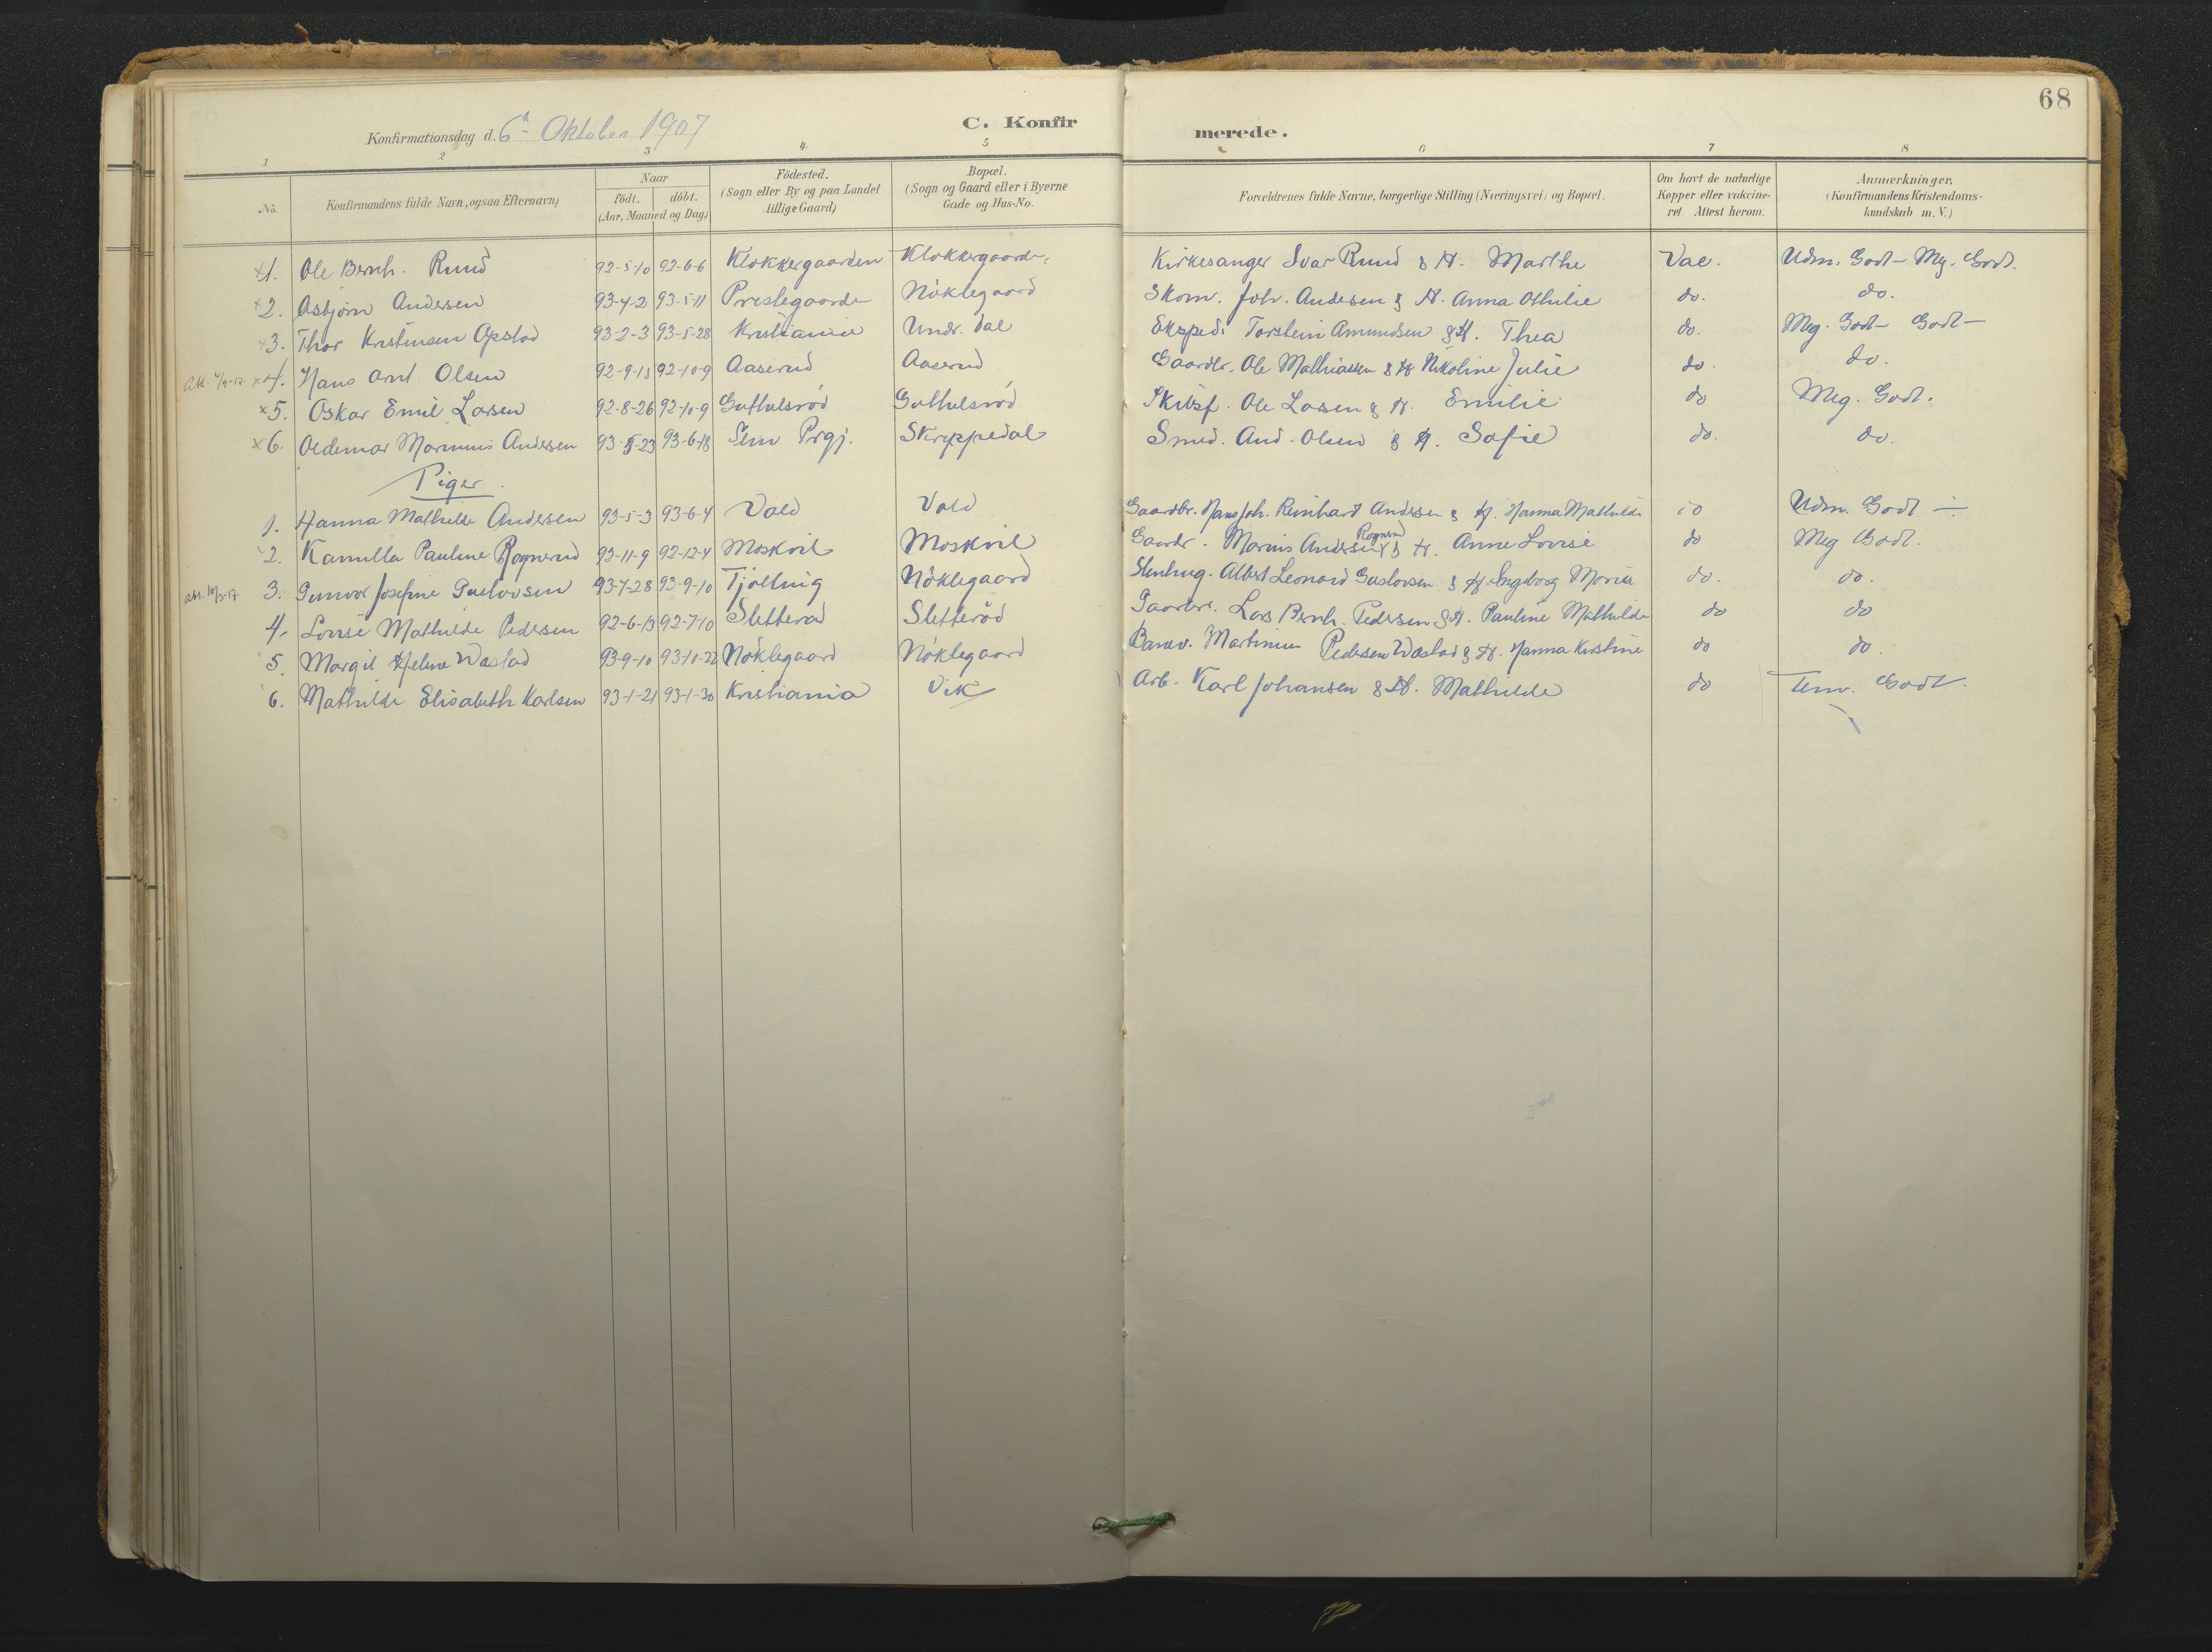 68
Konfirmationsdag d. 6te Oktober 1907 C. Konfirmerede.
1 2 3 4 5 6 7 8
No. Konfirmandens fulde Navn, ogsaa Efternavn) Naar födt. döbt. (Aar, Maaned og Dag) Födested. (Sogn eller By og paa Landet tillige Gaard) Bopæl. (Sogn og Gaard eller i Byerne Gade og Hus-No. Forældrenes fulde Navne, borgerlige Stilling (Næringsvei) og Bopæl. Om havt de naturlige Kopper eller vakcineret Attest herom. Anmærkninger. (Konfirmandens Kristendomskundskab m. V.)
x1. Ole Bernh. Ruud 92-5-10 92-6-6 Klokkergaarden Klokkergaarden Kirkesanger Ivar Ruud & H. Marthe Vac. Udm. Godt - Mg. Godt.
x2. Asbjørn Andersen 93-4-2 93-5-11 Prestegaarde Nöklegaard Skom. Joh. Andersen & H. Anna Othilie do. do.
x3. Thor Kristensen Opstad 93-2-3 93-5-28 Kristiania Undr. dal Ekspedi Torstein Amundsen & H. Thea do. Meg. Godt - Godt -
x4. Hans Arnt Olsen 92-9-13 92-10-9 Aaserud Aaserud Gaardbr. Ole Mathiassen & H Nikoline Julie do. do.
x5. Oskar Emil Larsen 92-8-26 92-10-9 Guthulsröd Guthulsröd Skibsf. Ole Larsen & H. Emilie do Meg. Godt.
x6. Oldemar Marinius Andersen 93-5-23 93-6-18 Sem Prgj. Skreppedal Smed. And. Olsen & H. Sofie do. do.
Piger
1. Hanna Mathilde Andersen 93-5-3 93-6-4 Vold Vold Gaardbr. Hans Joh. Reinhart Andersen & H. Hanna Mathilde do Udm. Godt -
2. Kamilla Pauline Rognerud 92-11-9 92-12-4 Moskvil Moskvil Gaardr. Marius Andersen Rognerud & H. Anne Lovise do Meg Godt.
3. Gunvor Josefine Gustavsen 93-7-28 93-9-10 Tjölling Nöklegaard Stenhug. Albert Leonard Gustavsen & H. Ingeborg Maria do. do.
4. Lovise Mathilde Pedersen 92-6-13 92-7-10 Sletteröd Sletteröd Gaardbr. Lars Bernh. Pedersen & H. Pauline Mathilde do do
5. Margit Helene Wastad 93-9-10 93-10-22 Nöklegaard Nöklegaard Banev. Martinius Pedersen Wastad & H. Hanna Kirstine do do.
6. Mathilde Elisabeth Karlsen 93-1-21 93-1-30 Kristiania Vik Arb. Karl Johansen & H. Mathilde do Tem. Godt.